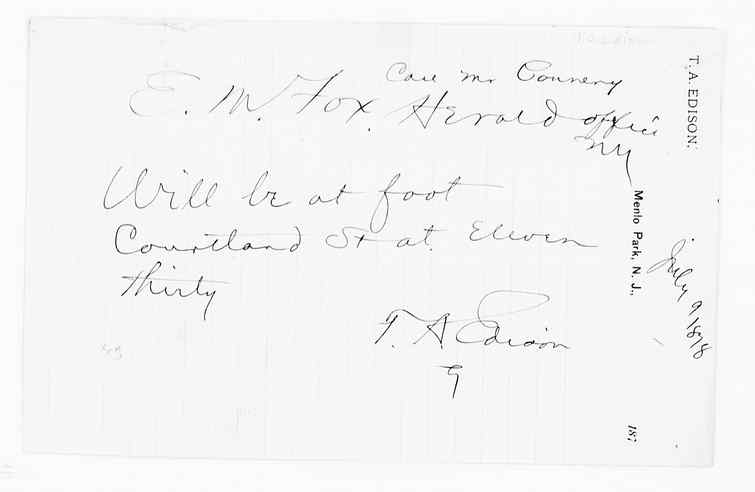 T. A. EDISON.
Menlo Park, N. J.,
July 9 1878
187
Care Mr Connery
E. M. Fox. Herald office
NY
Will be at foot
Courtland St at Eleven
thirty
T. A Edison